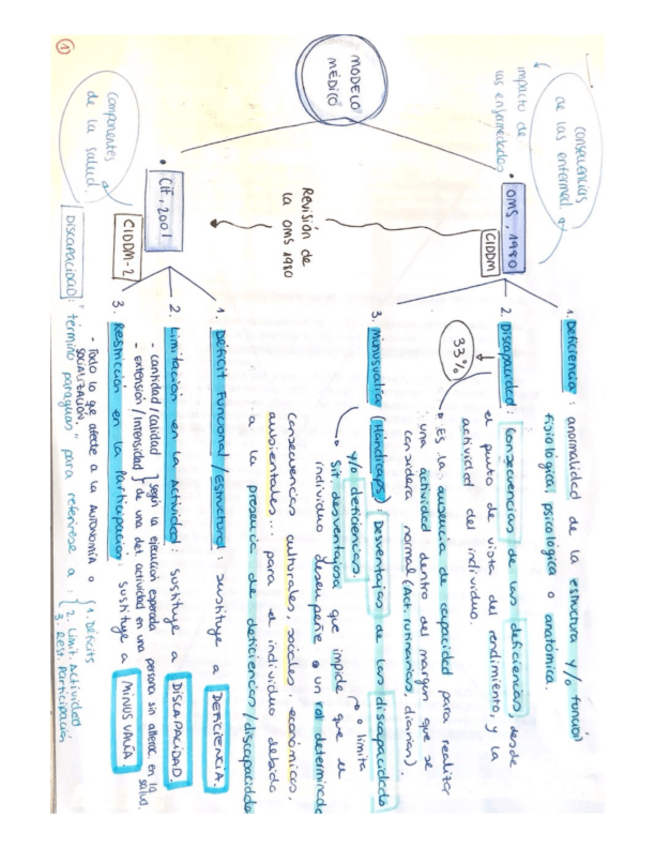 ①
MODELO
MÉDICO
consecuencias
de las enfermed.
impacto de
las enfermedades
• OMS, 1980
CIDDM
1. Deficiencia: anormalidad de la estructura y/o función
fisiológica, psicológica o anatómica.
2. Discapacidad: Consecuencias de las deficiencias, desde
el punto de vista del rendimiento, y la
actividad del individuo.
33%
Es la ausencia de capacidad para realizar
una actividad dentro del margen que se
considera normal (Act. rutinarias, diarias).
3. Minusvalía (Handicaps): Desventajas de las discapacidades
y/o deficiencias.
Sit. desventajosa que impide o limita
que el
individuo desempeñe un rol determinado
Consecuencias culturales, sociales, económicas,
ambientales... para el individuo debido
a la presencia de deficiencias/discapacidades
Revisión de
la OMS 1980
componentes
de la salud.
• CIF, 2001
CIDDM-2
1. Déficit Funcional/Estructural: sustituye a DEFICIENCIA.
2. Limitación en la Actividad: sustituye a DISCAPACIDAD.
- cantidad/calidad
- extensión/intensidad
según la ejecución esperada
de una det. actividad en una persona sin alterac. en la
salud.
3. Restricción en la Participación: sustituye a MINUSVALÍA
- Todo lo que afecte a la AUTONOMÍA o
SOCIALIZACIÓN.
DISCAPACIDAD: "término paraguas" para referirse a:
1. Déficits
2. Limit. Actividad
3. Rest. Participación